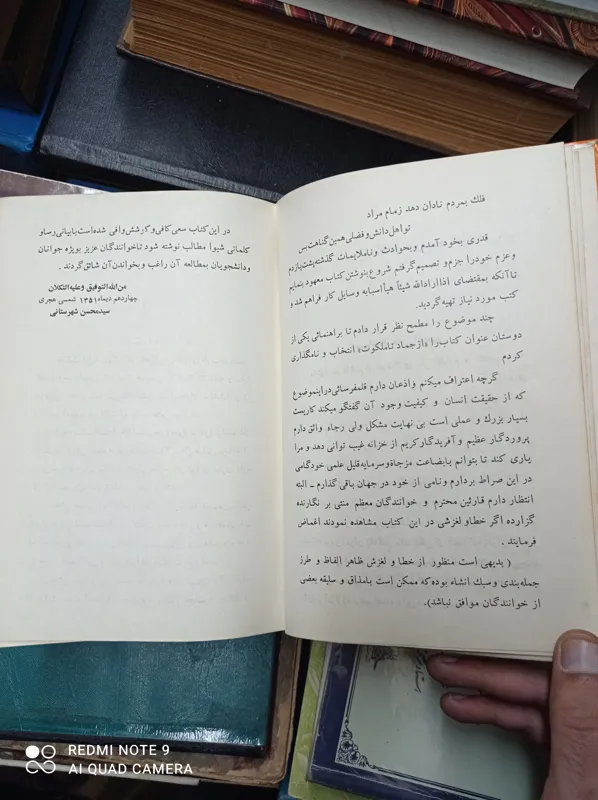 فلك بمردم نادان دهد زمام مراد
تو اهل دانش و فضلی همین گناهت بس
قدری بخود آمدم و بحوادث و ناملایمات گذشته پشت پا زدم
و عزم خود را جزم و تصمیم گرفتم شروع بنوشتن کتاب معهود بنمایم
تا آنکه بمقتضای اذا اراد الله شیئاً هیأ اسبابه وسایل کار فراهم شد و
کتب مورد نیاز تهیه گردید.
چند موضوع را مطمح نظر قرار دادم تا براهنمائی یکی از
دوستان عنوان کتاب را «از جماد تا ملکوت» انتخاب و نامگذاری
کردم
گرچه اعتراف میکنم و اذعان دارم قلمفرسائی در این موضوع
که از حقیقت انسان و کیفیت وجود آن گفتگو میکند کاریست
بسیار بزرك و عملی است بی نهایت مشکل ولی رجاء واثق دارم
پروردگار عظیم و آفریدگار کریم از خزانه غیب توانی دهد و مرا
یاری کند تا بتوانم با بضاعت مزجاة و سرمایه قلیل علمی خود گامی
در این صراط بردارم و نامی از خود در جهان باقی گذارم ـ البته
انتظار دارم قارئین محترم و خوانندگان معظم منتی بر نگارنده
گزارده اگر خطا و لغزشی در این کتاب مشاهده نمودند اغماض
فرمایند .
( بدیهی است منظور از خطا و لغزش ظاهر الفاظ و طرز
جمله بندی و سبك انشاء بوده که ممکن است بامذاق و سلیقه بعضی
از خوانندگان موافق نباشد).
در این کتاب سعی کافی و کوشش وافی شده است با بیانی رسا و
کلماتی شیوا مطالب نوشته شود تا خوانندگان عزیز بویژه جوانان
و دانشجویان بمطالعه آن راغب و بخواندن آن شائق گردند .
من الله التوفیق و علیه التکلان
چهاردهم دیماه ۱۳۵۱ شمسی هجری
سید محسن شهرستانی
REDMI NOTE 9
AI QUAD CAMERA